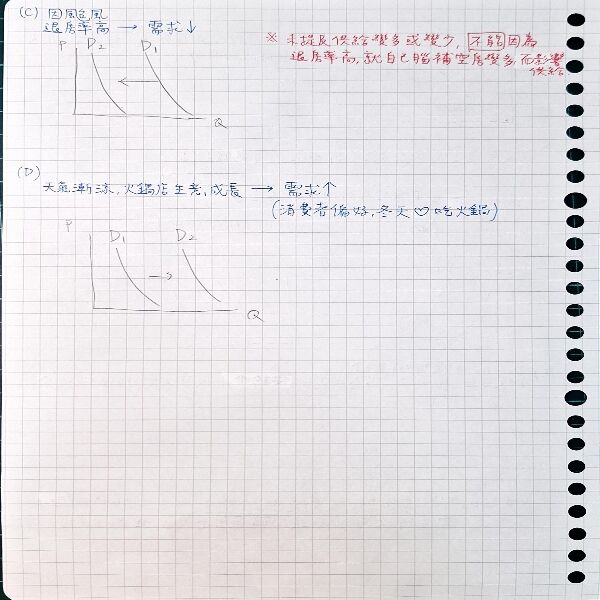 (C) 因颱風
退房率高 → 需求↓
※ 未提及供給變多或變少, 不能因為
退房率高, 就自己腦補空房變多, 而影響
供給
P D2 D1
Q
(D)
天氣漸涼, 火鍋店生意, 成長 → 需求↑
(消費者偏好, 冬天♡吃火鍋)
P D1 D2
Q